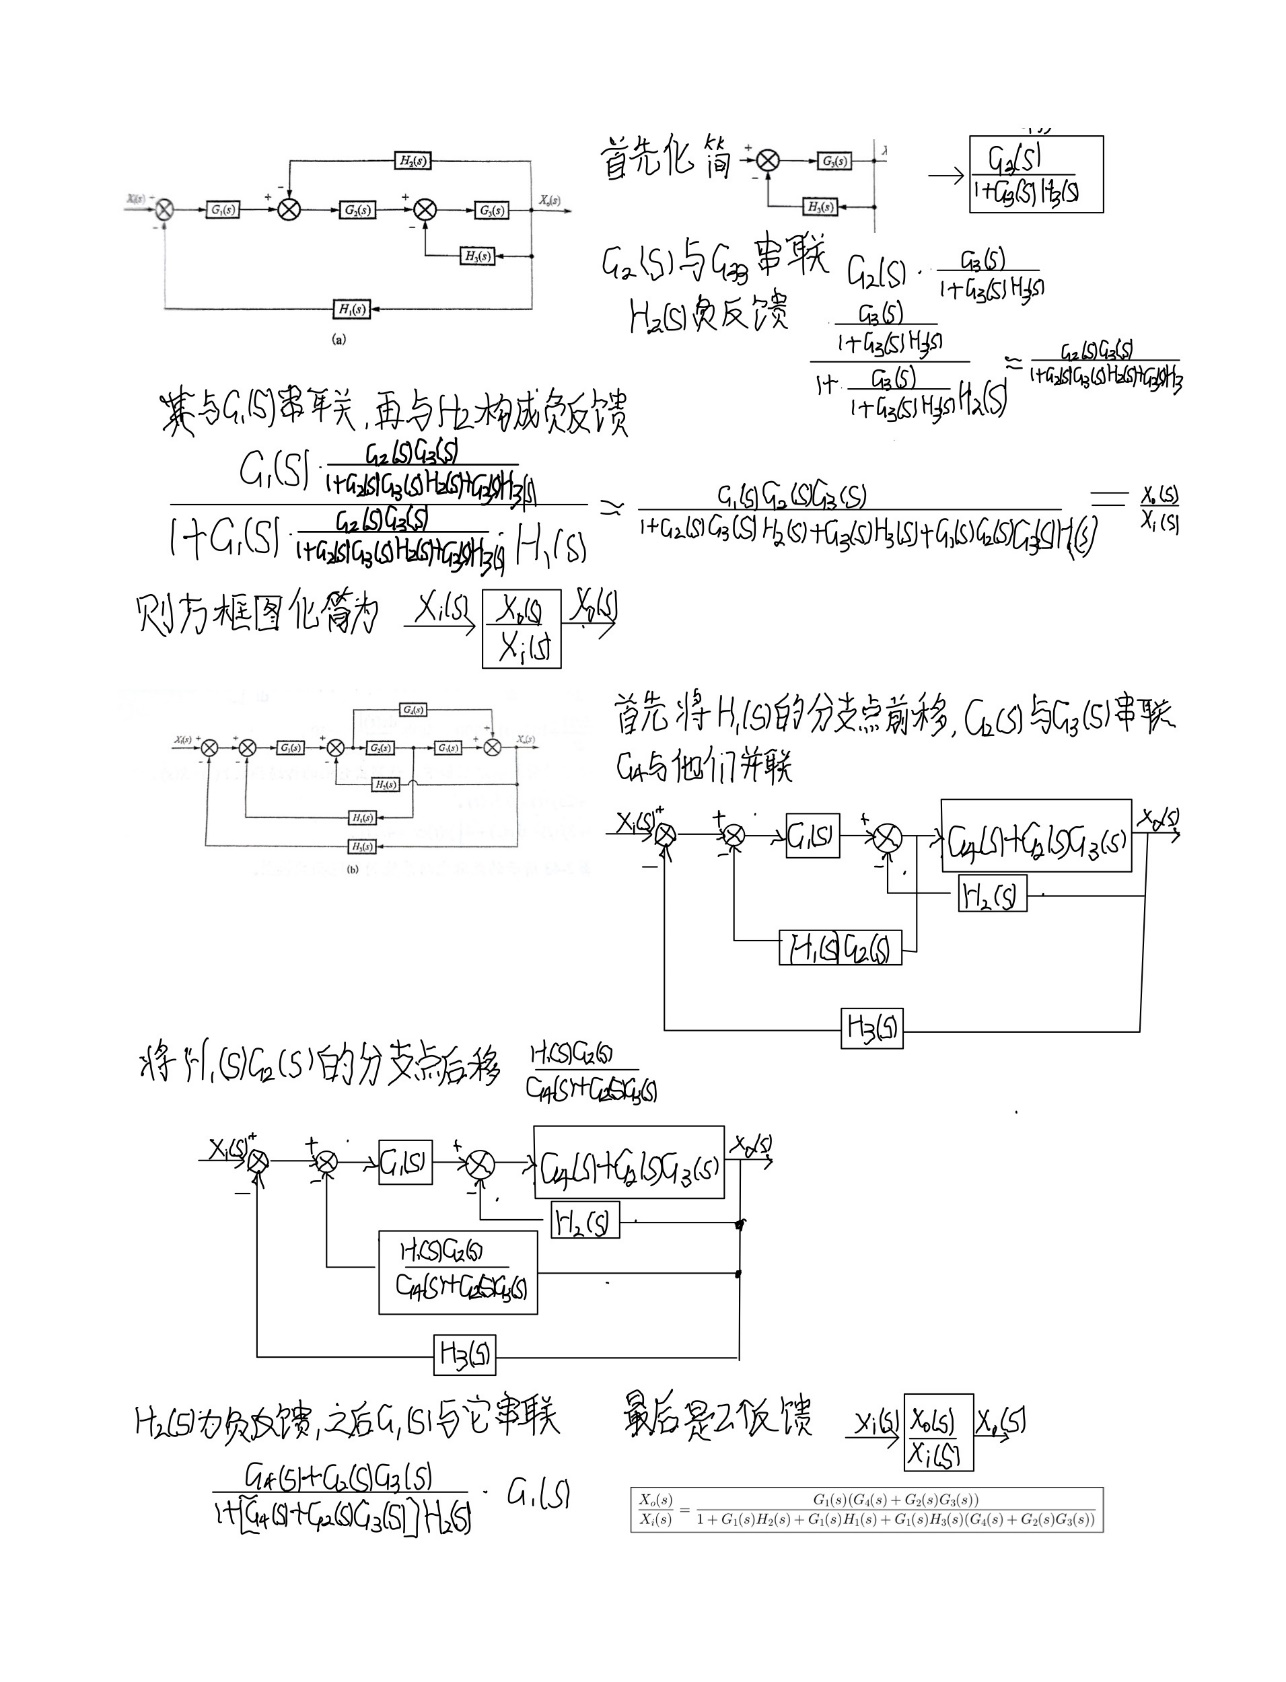 H₂(s)
Xi(s) + G₁(s) + − G₂(s) + G₃(s) Xₒ(s)
− −
H₃(s)
H₁(s)
(a)
首先化简 + G₃(s)
− H₃(s)
→ G₃(s) / 1+G₃(s)H₃(s)
G₂(s)与G₃₃串联 G₂(s)· G₃(s) / 1+G₃(s)H₃(s)
H₂(s)负反馈
G₃(s) / 1+G₃(s)H₃(s) / 1+ G₃(s) / 1+G₃(s)H₃(s) H₂(s) ≈ G₂(s)G₃(s) / 1+G₂(s)G₃(s)H₂(s)+G₃(s)H₃
其与G₁(s)串联,再与H₂构成负反馈
G₁(s)· G₂(s)G₃(s) / 1+G₂(s)G₃(s)H₂(s)+G₃(s)H₃(s) / 1+G₁(s)· G₂(s)G₃(s) / 1+G₂(s)G₃(s)H₂(s)+G₃(s)H₃(s) · H₁(s) ≈ G₁(s)G₂(s)G₃(s) / 1+G₂(s)G₃(s)H₂(s)+G₃(s)H₃(s)+G₁(s)G₂(s)G₃(s)H₁(s) = Xₒ(s) / Xi(s)
则方框图化简为 Xi(s) Xₒ(s) / Xi(s) Xₒ(s)
G₄(s)
Xi(s) + + G₁(s) + G₂(s) G₃(s) + + Xₒ(s)
− − −
H₂(s)
H₁(s)
H₃(s)
(b)
首先将H₁(s)的分支点前移,G₂(s)与G₃(s)串联
G₄与他们并联
Xi(s) + + G₁(s) + G₄(s)+G₂(s)G₃(s) Xₒ(s)
− − −
H₂(s)
H₁(s)G₂(s)
H₃(s)
将H₁(s)G₂(s)的分支点后移 H₁(s)G₂(s) / G₄(s)+G₂(s)G₃(s)
Xi(s) + + G₁(s) + G₄(s)+G₂(s)G₃(s) Xₒ(s)
− − −
H₂(s)
H₁(s)G₂(s) / G₄(s)+G₂(s)G₃(s)
H₃(s)
H₂(s)为负反馈,之后G₁(s)与它串联
G₄(s)+G₂(s)G₃(s) / 1+[G₄(s)+G₂(s)G₃(s)]H₂(s) · G₁(s)
最后是2个反馈 Xi(s) Xₒ(s) / Xi(s) Xₒ(s)
Xₒ(s) / Xi(s) = G₁(s)(G₄(s) + G₂(s)G₃(s)) / 1 + G₁(s)H₂(s) + G₁(s)H₁(s) + G₁(s)H₃(s)(G₄(s) + G₂(s)G₃(s))